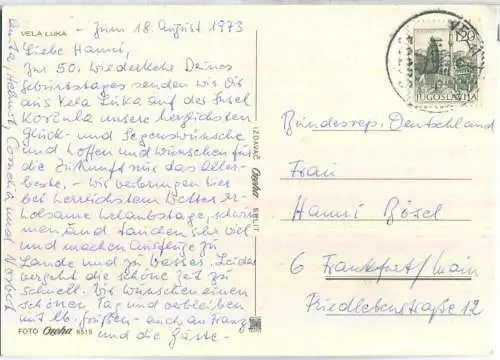 VELA LUKA - zum 18. August 1973
Liebe Hanni,
Zur 50. Wiederkehr Deines
Geburtstages senden wir Dir
aus Vela Luka auf der Insel
Korčula unsere herzlichsten
Glück- und Segenswünsche
und hoffen und wünschen für
die Zukunft nur das Aller-
beste. - Wir verbringen hier
bei herrlichstem Wetter er-
holsame Urlaubstage, schwim-
men und tauchen sehr viel
und machen Ausflüge zu
Lande und zu Wasser. Leider
vergeht die schöne Zeit zu
schnell. Wir wünschen einen
schönen Tag und verbleiben
mit lb. Grüßen - auch an Franz
und die Gäste -
Helmut, Cornelia und Norbert
FOTO 8515
IZDAVAČ
1.20
JUGOSLAVIJA
Bundesrep. Deutschland
Frau
Hanni Bösel
6 Frankfurt/Main
Friedlebenstraße 12